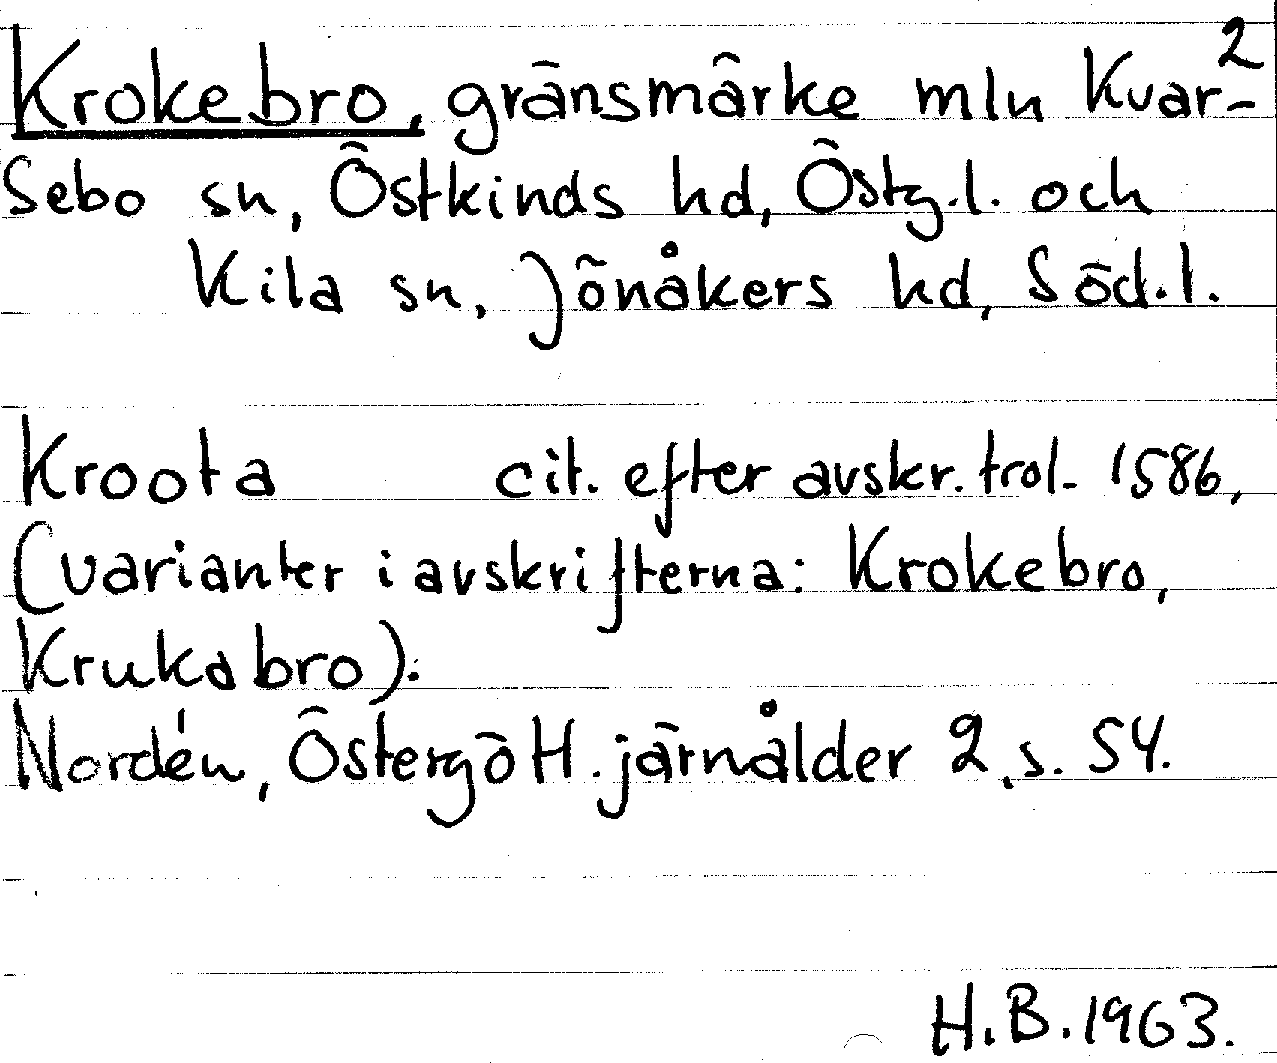 2
Krokebro, gränsmärke mln Kvar-
sebo sn, Östkinds hd, Östg.l. och
Kila sn, Jönåkers hd, Söd.l.
Kroota cit. efter avskr. trol. 1586,
(varianter i avskrifterna: Krokebro,
Krukabro).
Nordén, Östergötl. järnålder 2, s. 54.
H.B. 1963.